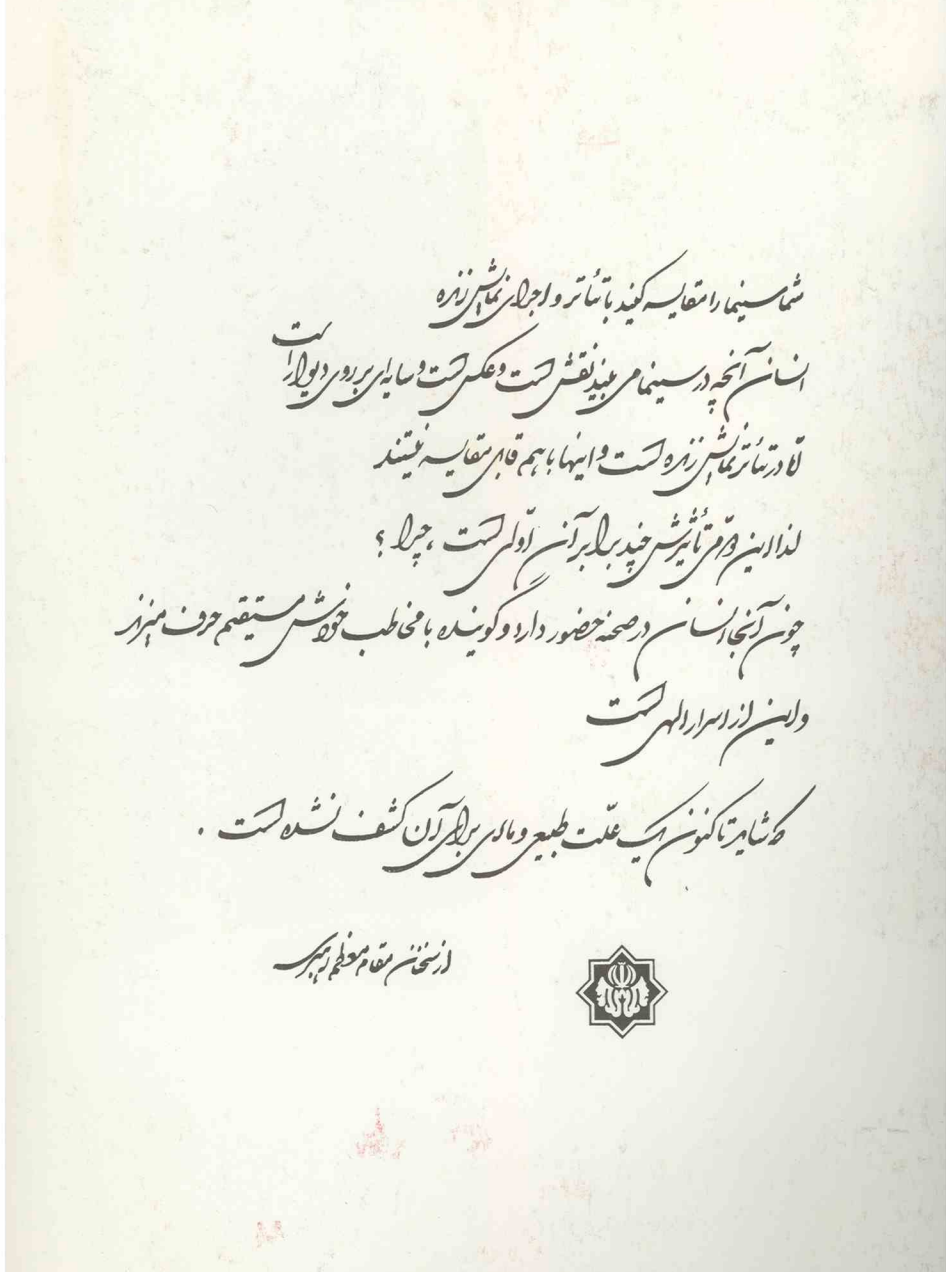 شما سینما را مقایسه کنید با تئاتر و اجرای نمایش زنده
انسان آنچه در سینما می بیند نقش است و عکس است و سایه ای بر روی دیوار است
امّا در تئاتر نمایش زنده است و اینها با هم قابل مقایسه نیستند
لذا این دوّمی تأثیرش چند برابر آن اوّلی است ، چرا ؟
چون آنجا انسان در صحنه حضور دارد و گوینده با مخاطب خودش مستقیم حرف میزند
و این از اسرار الهی است
که شاید تا کنون یک علّت طبیعی و مادی برای آن کشف نشده است .
از سخنان مقام معظم رهبری